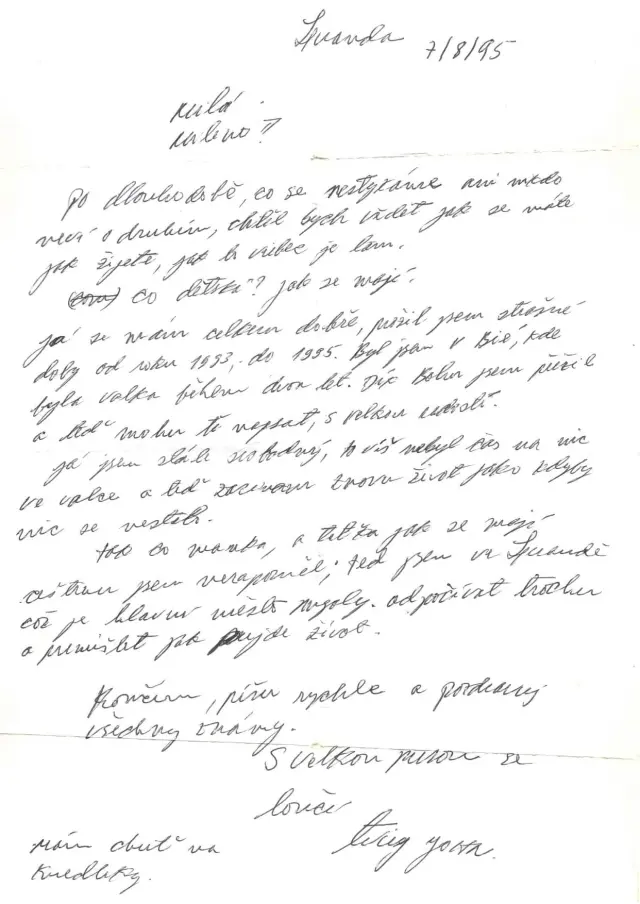 Luanda
7/8/95
Milá
Mileno!!
Po dlouhodobě, co se nestýkáme ani nikdo
neví o druhém, chtěl bych vědět jak se máte
jak žijete, jak to vůbec je tam.
co dětská? jak se mají.
Já se mám celkem dobře, přežil jsem strašné
doby od roku 1993, do 1995. Byl jsem v Bié, kde
byla valka během dvou let. Dík Bohu jsem přežil
a teď mohu ti napsat, s velkou radostí.
Já jsem stále svobodný, to víš nebyl čas na nic
ve valce a teď začínám znovu život jako kdyby
nic se nestalo.
tak co mamka, a teťka jak se mají
češtinu jsem nezapoměl, teď jsem ve Luandě
což je hlavní město Angoly. odpočívat trochu
a přemíšlet jak půjde život.
Končím, píšu rychle a pozdravuj
všechny známy.
S velkou pusou se
loučí
mám chutě na
Knedlíky.